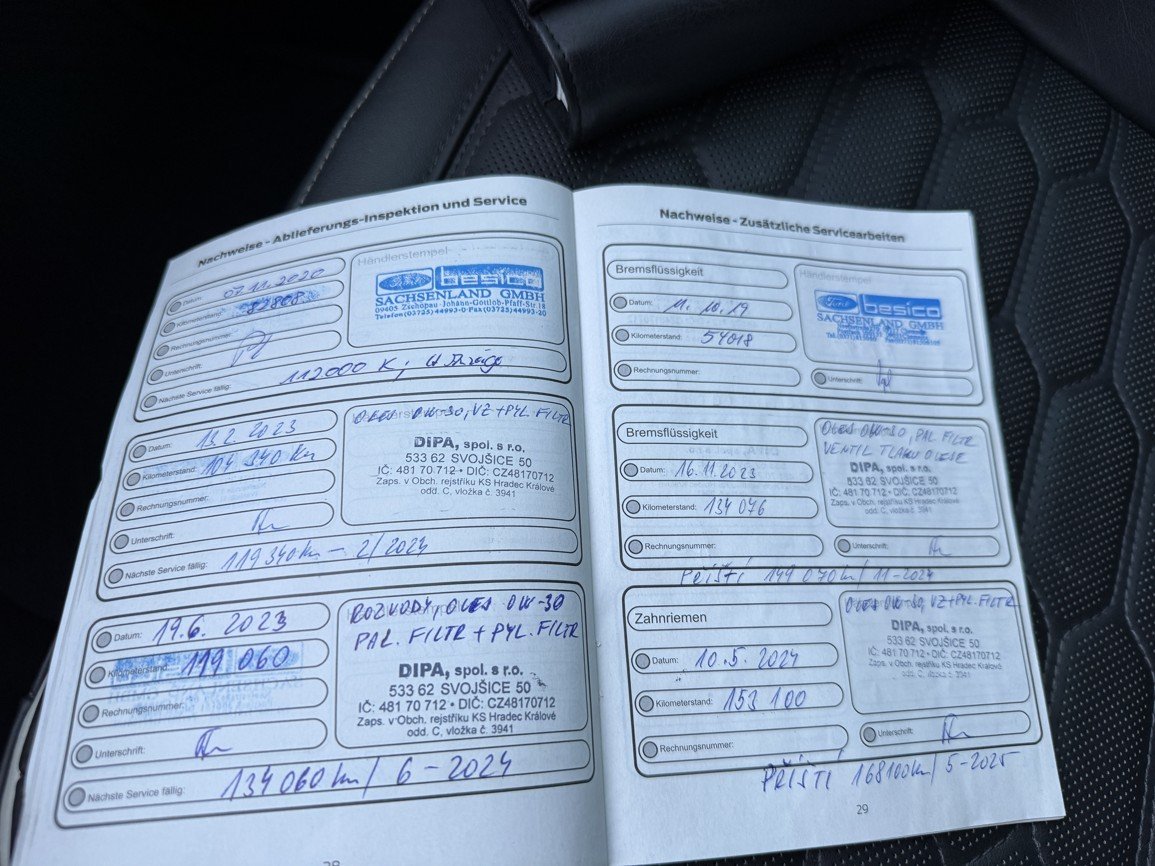 Nachweise - Ablieferungs-Inspektion und Service
Datum: 07.11.2020
Kilometerstand:
Rechnungsnummer:
Unterschrift:
Nächste Service fällig: 112000 K;
Händlerstempel
Ford besico
SACHSENLAND GMBH
09405 Zschopau · Johann-Gottlob-Pfaff-Str. 18
Telefon (03725) 44993-0 · Fax (03725) 44993-20
Datum: 13.2. 2023
Kilometerstand: 104 340 km
Rechnungsnummer:
Unterschrift:
Nächste Service fällig: 119 340 km - 2/2024
OLEJ 0W-30, VZ + PYL. FILTR
DiPA, spol. s r.o.
533 62 SVOJŠICE 50
IČ: 481 70 712 • DIČ: CZ48170712
Zaps. v Obch. rejstříku KS Hradec Králové
odd. C, vložka č. 3941
Datum: 19.6. 2023
Kilometerstand: 119 060
Rechnungsnummer:
Unterschrift:
Nächste Service fällig: 134 060 km / 6 - 2024
ROZVODY, OLEJ 0W-30
PAL. FILTR + PYL. FILTR
DiPA, spol. s r.o.
533 62 SVOJŠICE 50
IČ: 481 70 712 • DIČ: CZ48170712
Zaps. v Obch. rejstříku KS Hradec Králové
odd. C, vložka č. 3941
Nachweise - Zusätzliche Servicearbeiten
Bremsflüssigkeit
Datum: 11. 10. 19
Kilometerstand: 54018
Rechnungsnummer:
Händlerstempel
Ford besico
SACHSENLAND GMBH
Unterschrift:
Bremsflüssigkeit
Datum: 16.11.2023
Kilometerstand: 134 076
Rechnungsnummer:
OLEJ 0W-30, PAL. FILTR
VENTIL TLAKU OLEJE
DIPA, spol. s r.o.
533 62 SVOJŠICE 50
IČ: 481 70 712 • DIČ: CZ48170712
Zaps. v Obch. rejstříku KS Hradec Králové
odd. C, vložka č. 3941
Unterschrift:
PŘÍŠTÍ 149 070 km / 11-2024
Zahnriemen
Datum: 10.5. 2024
Kilometerstand: 153 100
Rechnungsnummer:
OLEJ 0W-30, VZ + PYL. FILTR
DIPA, spol. s r.o.
533 62 SVOJŠICE 50
IČ: 481 70 712 • DIČ: CZ48170712
Zaps. v Obch. rejstříku KS Hradec Králové
odd. C, vložka č. 3941
Unterschrift:
PŘÍŠTÍ 168100 km / 5-2025
29